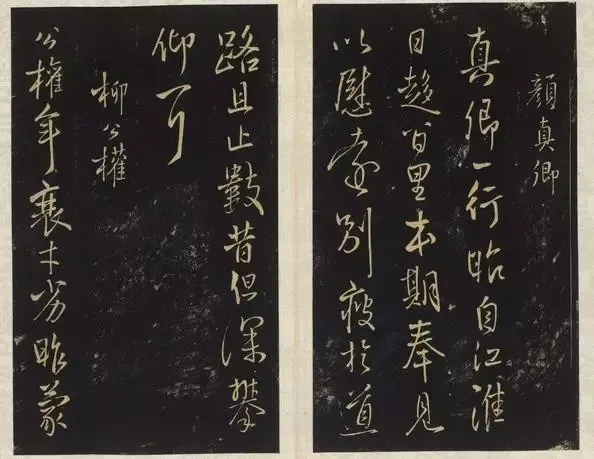 顏真卿
真卿一行自江淮
日趍百里本期奉見
以慰遠別疲於道
路且止昔但深攀
仰
柳公權
公權年衰才劣昨蒙